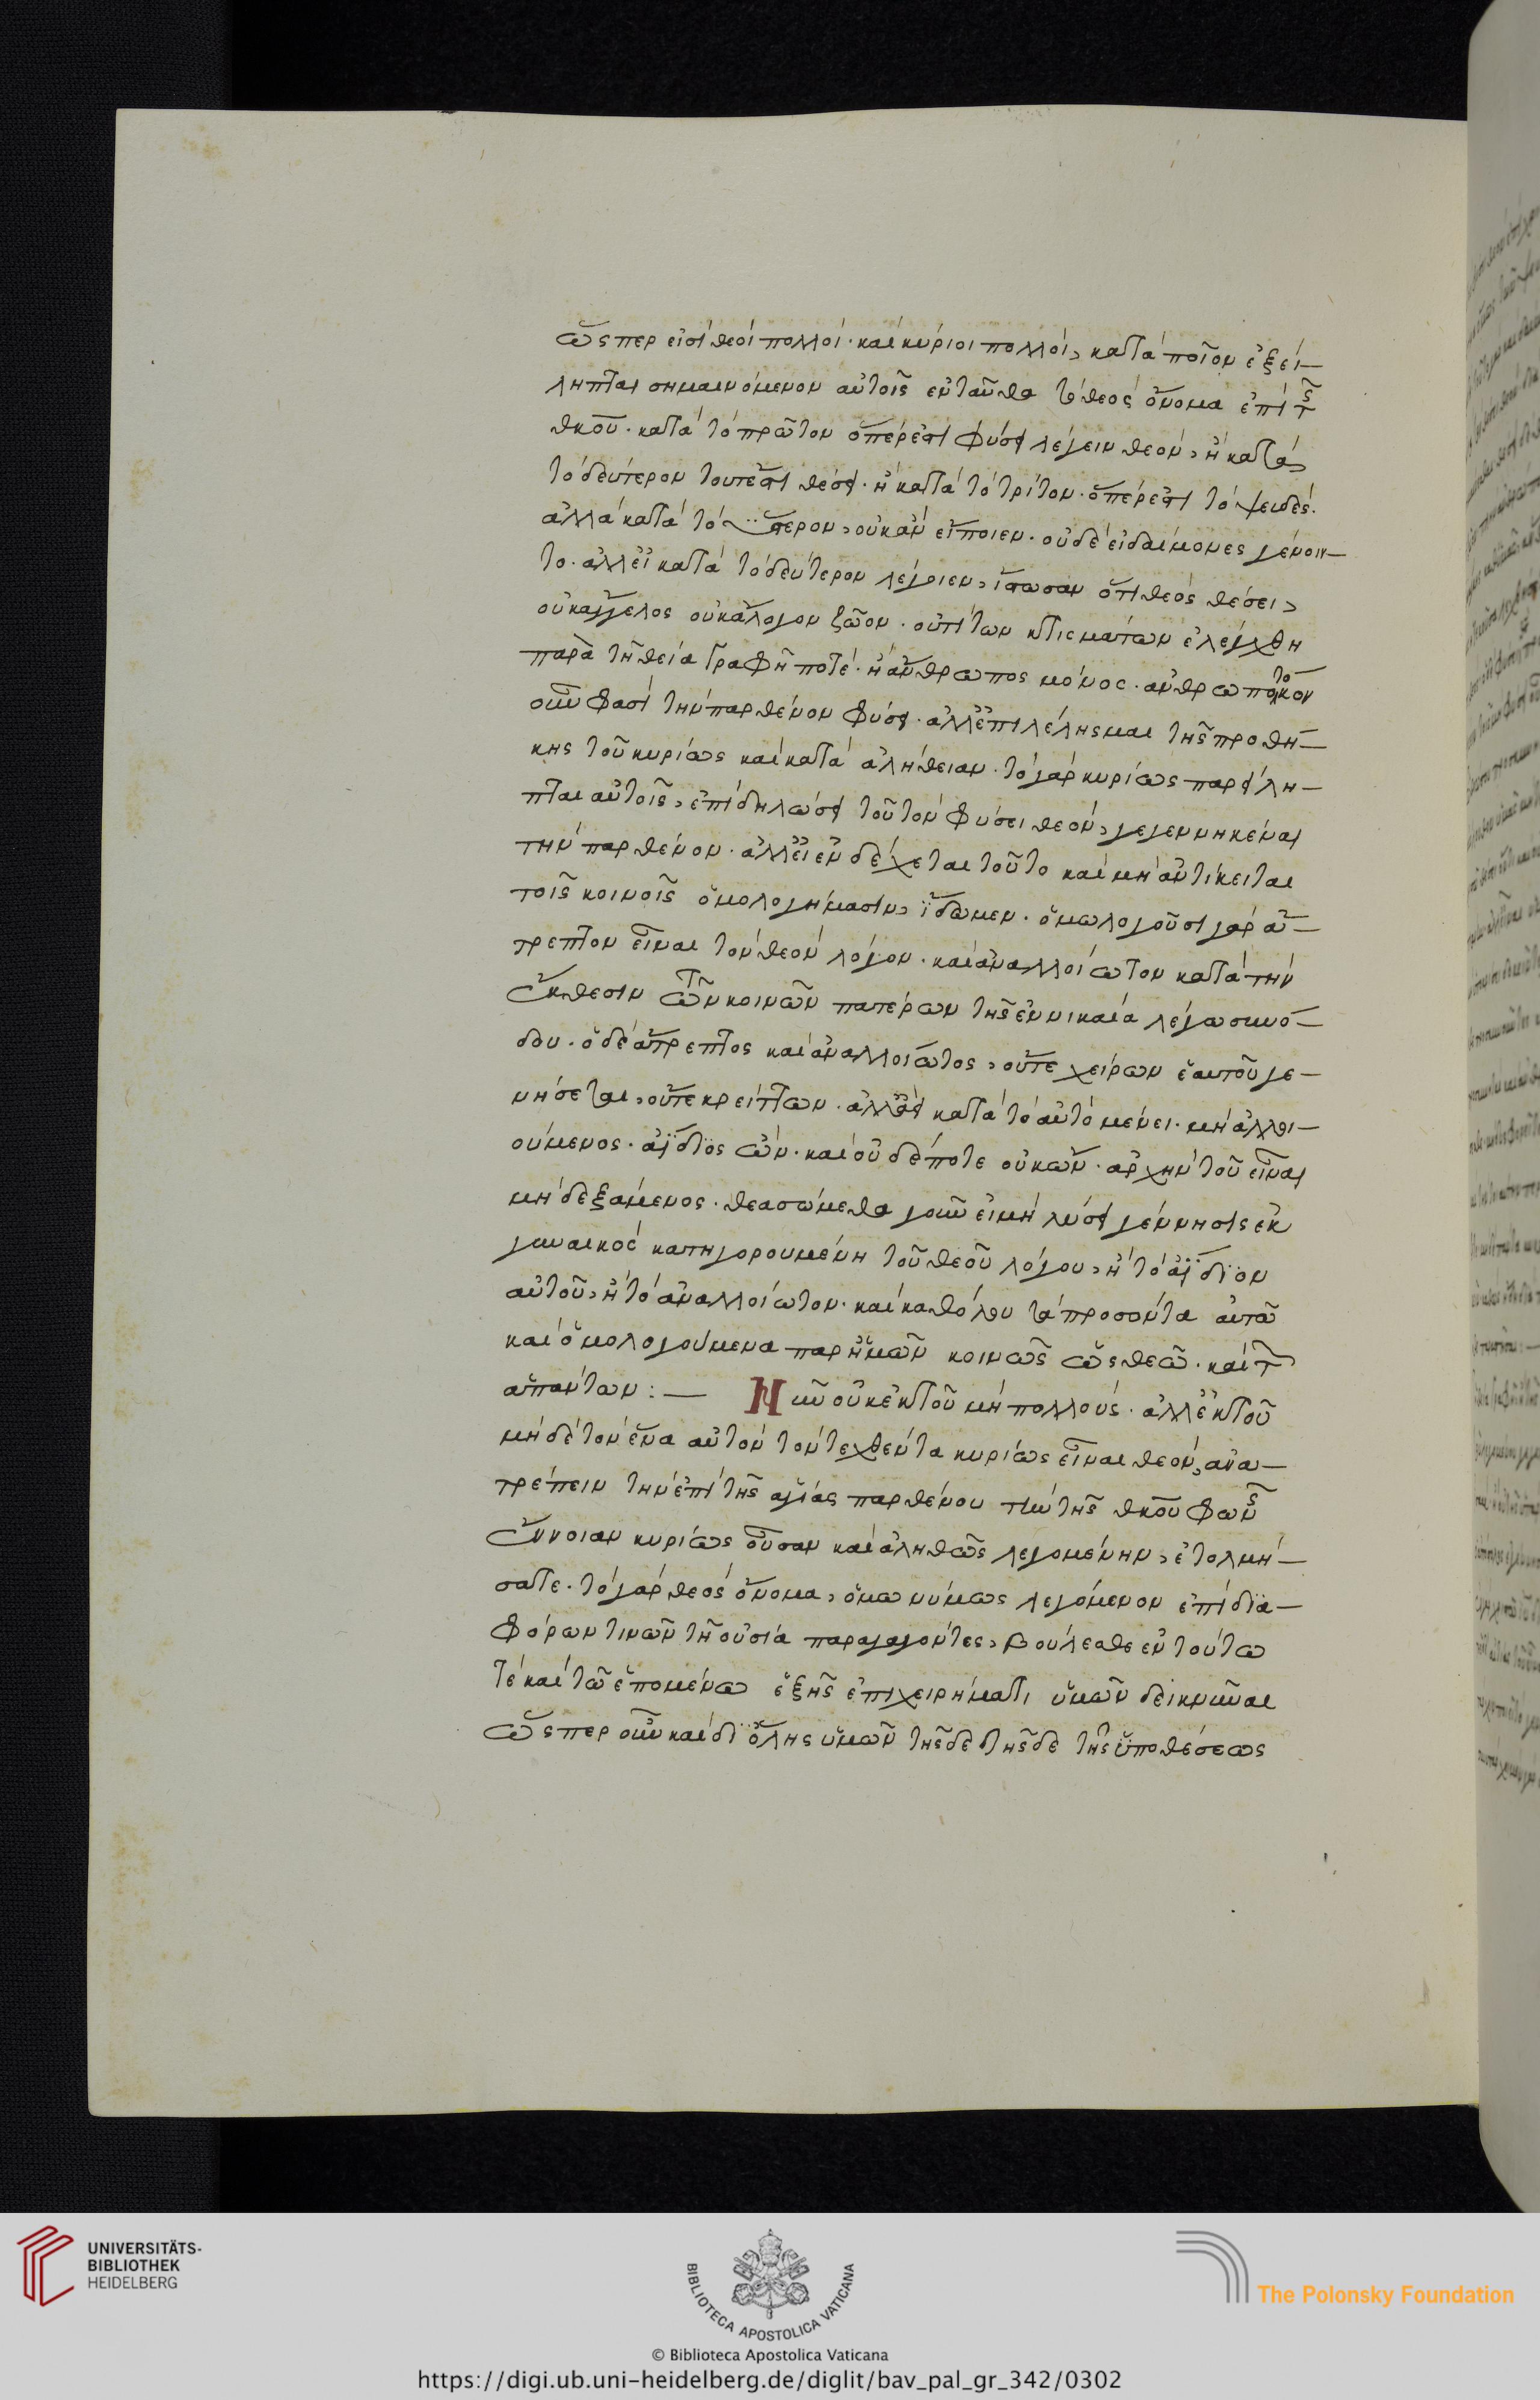 ὥσπερ εἰσὶ θεοὶ πολλοί· καὶ κύριοι πολλοί, κατὰ ποῖον ἐξεί–
ληπται σημαινόμενον αὐτοῖς ἐνταῦθα τὸ θεὸς ὄνομα ἐπὶ τ(ῆς)
θκου· κατὰ τὸ πρῶτον ὅπερ ἐστὶ φύσει λέγειν θεόν, ἢ κατὰ
τὸ δεύτερον τουτέστι θέσει· ἢ κατὰ τὸ τρίτον· ὅπερ ἐστὶ τὸ ψευδές·
ἀλλὰ κατὰ τὸ ὕστερον, οὐκ ἂν εἴποιεν· οὐδὲ εἰ δαίμονες γένοιν–
το· ἀλλ' εἰ κατὰ τὸ δεύτερον λέγοιεν, ἴστωσαν ὅτι θεὸς θέσει,
οὐκ ἄγγελος οὐκ ἄλογον ζῶον· οὔτι τῶν κτισμάτων ἐλέχθη
παρὰ τῇ θεία γραφῇ ποτέ· ἢ ἄνθρωπος μόνος· ἀνθρωποτόκον
οὖν φασὶ τὴν παρθένον φύσει· ἀλλ' ἐπιλέλησμαι τῆς προσθή–
κης τοῦ κυρίως καὶ κατὰ ἀλήθειαν· τὸ γὰρ κυρίως παρείλη–
πται αὐτοῖς, ἐπὶ δηλώσει τοῦ τὸν φύσει θεόν, γεγεννηκέναι
τὴν παρθένον· ἀλλ' εἰ ἐνδέχεται τοῦτο καὶ μὴ ἀντίκειται
τοῖς κοινοῖς ὁμολογήμασιν, ἴδωμεν· ὁμωλογοῦσι γὰρ ἄ–
τρεπτον εἶναι τὸν θεὸν λόγον· καὶ ἀναλλοίωτον κατὰ τὴν
ἔκθεσιν τῶν κοινῶν πατέρων τῆς ἐν νικαία λέγω συνό–
δου· ὁ δὲ ἄτρεπτος καὶ ἀναλλοίωτος, οὔτε χείρων ἑαυτοῦ γε–
νήσεται, οὔτε κρείττων· ἀλλ' ἀεὶ κατὰ τὸ αὐτὸ μένει· μὴ ἀλλοι–
ούμενος· ἀΐδιος ὤν· καὶ οὐδέποτε οὐκ ὤν· ἀρχὴν τοῦ εἶναι
μὴ δεξάμενος· θεασώμεθα γοῦν εἰ μὴ λύσει γέννησις ἐκ
γυναικὸς κατηγορουμένη τοῦ θεοῦ λόγου, ἢ τὸ ἀΐδιον
αὐτοῦ, ἢ τὸ ἀναλλοίωτον· καὶ καθόλου τὰ προσόντα αὐτῶ
καὶ ὁμολογούμενα παρ' ἡμῶν κοινῶς ὡς θεῶ· καὶ τ(ῶν)
ἁπάντων:— Νῦν οὐκ ἐκ τοῦ μὴ πολλούς· ἀλλ' ἐκ τοῦ
μὴ δὲ τὸν ἕνα αὐτὸν τὸν τεχθέντα κυρίως εἶναι θεόν, ἀνα–
τρέπειν τὴν ἐπὶ τῆς ἁγίας παρθένου τὴν τῆς θκου φων(ῆς)
ἔννοιαν κυρίως οὖσαν καὶ ἀληθῶς λεγομένην, ἐτολμή–
σατε· τὸ γὰρ θεὸς ὄνομα, ὁμωνύμως λεγόμενον ἐπὶ δια–
φόρων τινῶν τῇ οὐσία παραγαγόντες, βούλεσθε ἐν τούτω
τὲ καὶ τῶ ἑπομένω ἑξῆς ἐπιχειρήματι ὑμῶν δεικνῦναι
ὥσπερ οὖν καὶ δι' ὅλης ὑμῶν τῆσδε τῆσδε τῆς ὑποθέσεως
UNIVERSITÄTS-
BIBLIOTHEK
HEIDELBERG
BIBLIOTECA APOSTOLICA VATICANA
The Polonsky Foundation
© Biblioteca Apostolica Vaticana
https://digi.ub.uni-heidelberg.de/diglit/bav_pal_gr_342/0302